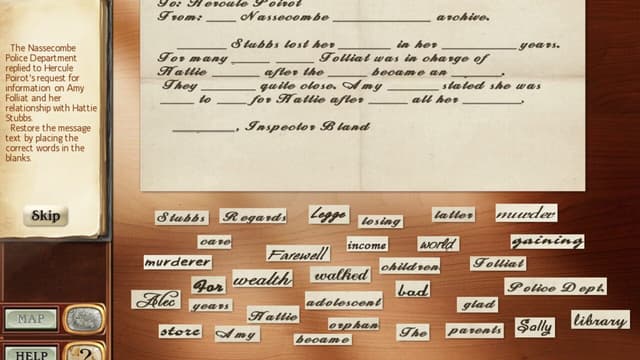 To: Hercule Poirot
From: ____ Nassecombe ____________ archive.
______ Stubbs lost her ______ in her _________ years.
For many ____ ____ Folliat was in charge of
Hattie _____ after the _____ became an ______.
They _______ quite close. Amy ______ stated she was
____ to ___ for Hattie after _____ all her _______.
________, Inspector Bland
The Nassecombe
Police Department
replied to Hercule
Poirot's request for
information on Amy
Folliat and her
relationship with Hattie
Stubbs.
Restore the message
text by placing the
correct words in the
blanks.
Skip
MAP
HELP
?
Stubbs Regards Legge losing latter murder
care Farewell income world gaining
murderer children Folliat
For wealth walked bad Police Dept.
Alec years Hattie adolescent glad
store Amy became orphan The parents Sally library